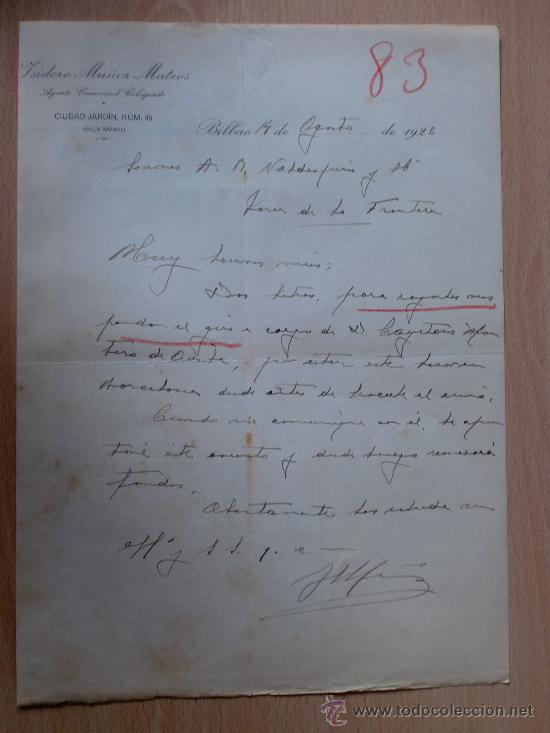 83
Isidoro Muñoz Mateos
Agente Comercial Colegiado
CIUDAD JARDÍN, NÚM. 45
(VILLA RAFAEL)
Bilbao 14 de Agosto de 1928
Señores A. R. Valdespino y Hº
Jerez de la Frontera
Muy señores mios:
Dos letras para rogarles sus
pendan el giro a cargo de D Cayetano
de por estar este señor en
Barcelona desde antes de hacerle el envío.
Cuando me comunique con él, le
este asunto y desde luego remesará
fondos.
Atentamente les saluda su
affº y S. S. q. e.
todocoleccion
www.todocoleccion.net